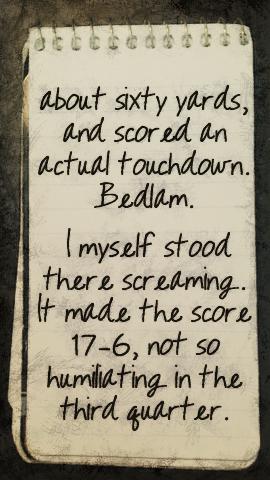 about sixty yards,
and scored an
actual touchdown.
Bedlam.
I myself stood
there screaming.
It made the score
17-6, not so
humiliating in the
third quarter.